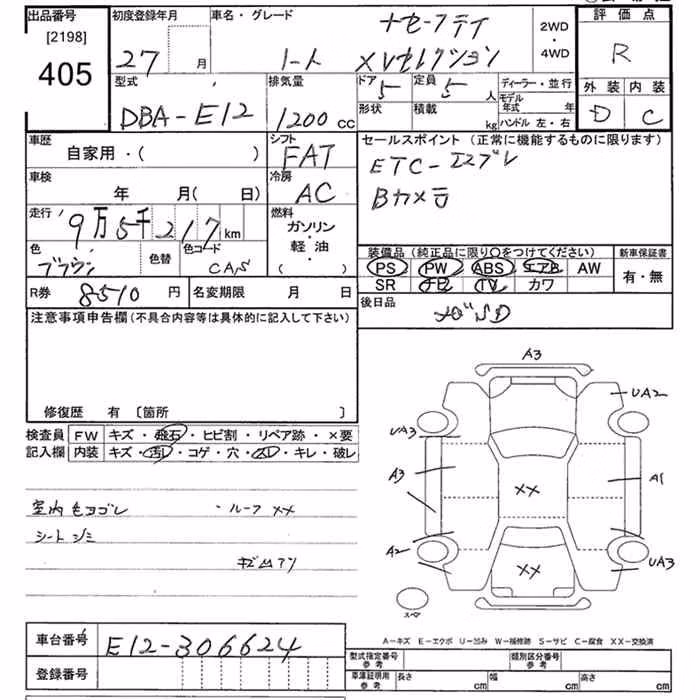 出品番号 [2198] 405
初度登録年月 27 月
車名・グレード ノート XVセレクション
2WD・4WD
評価点 R
外装 D 内装 C
型式 DBA-E12
排気量 1200 cc
ドア 5 定員 5 人
形状 積載 kg
ディーラー・並行
モデル年式 年
ハンドル 左・右
車歴 自家用・( )
シフト FAT
セールスポイント (正常に機能するものに限ります)
ETC-
Bカメラ
車検 年 月( 日)
冷房 AC
走行 9万5千217 km
燃料 ガソリン・軽油・( )
色 ブラウン 色替 色コード CAS
装備品 (純正品に限り○をつけてください) 新車保証書
PS PW ABS エアB AW 有・無
SR ナビ TV カワ
R券 8510 円 名変期限 月 日
後日品 SD
注意事項申告欄(不具合内容等は具体的に記入して下さい)
修復歴 有 〔箇所 〕
検査員記入欄
FW キズ・飛石・ヒビ割・リペア跡・×要
内装 キズ・汚レ・コゲ・穴・スレ・キレ・破レ
室内もヨゴレ ・ルーフ XX
シートシミ
A3
UA2
UA3
A3
XX
A1
A2
XX
UA3
スペア
A-キズ E-エクボ U-凹み W-補修跡 S-サビ C-腐食 XX-交換済
車台番号 E12-306624
登録番号
型式指定番号 参考 類別区分番号 参考
車庫証明用 参考 長さ cm 幅 cm 高さ cm